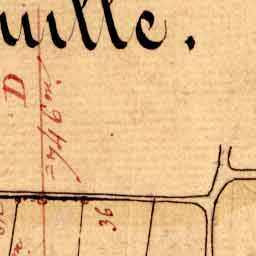 uille.
D
=746m.
36